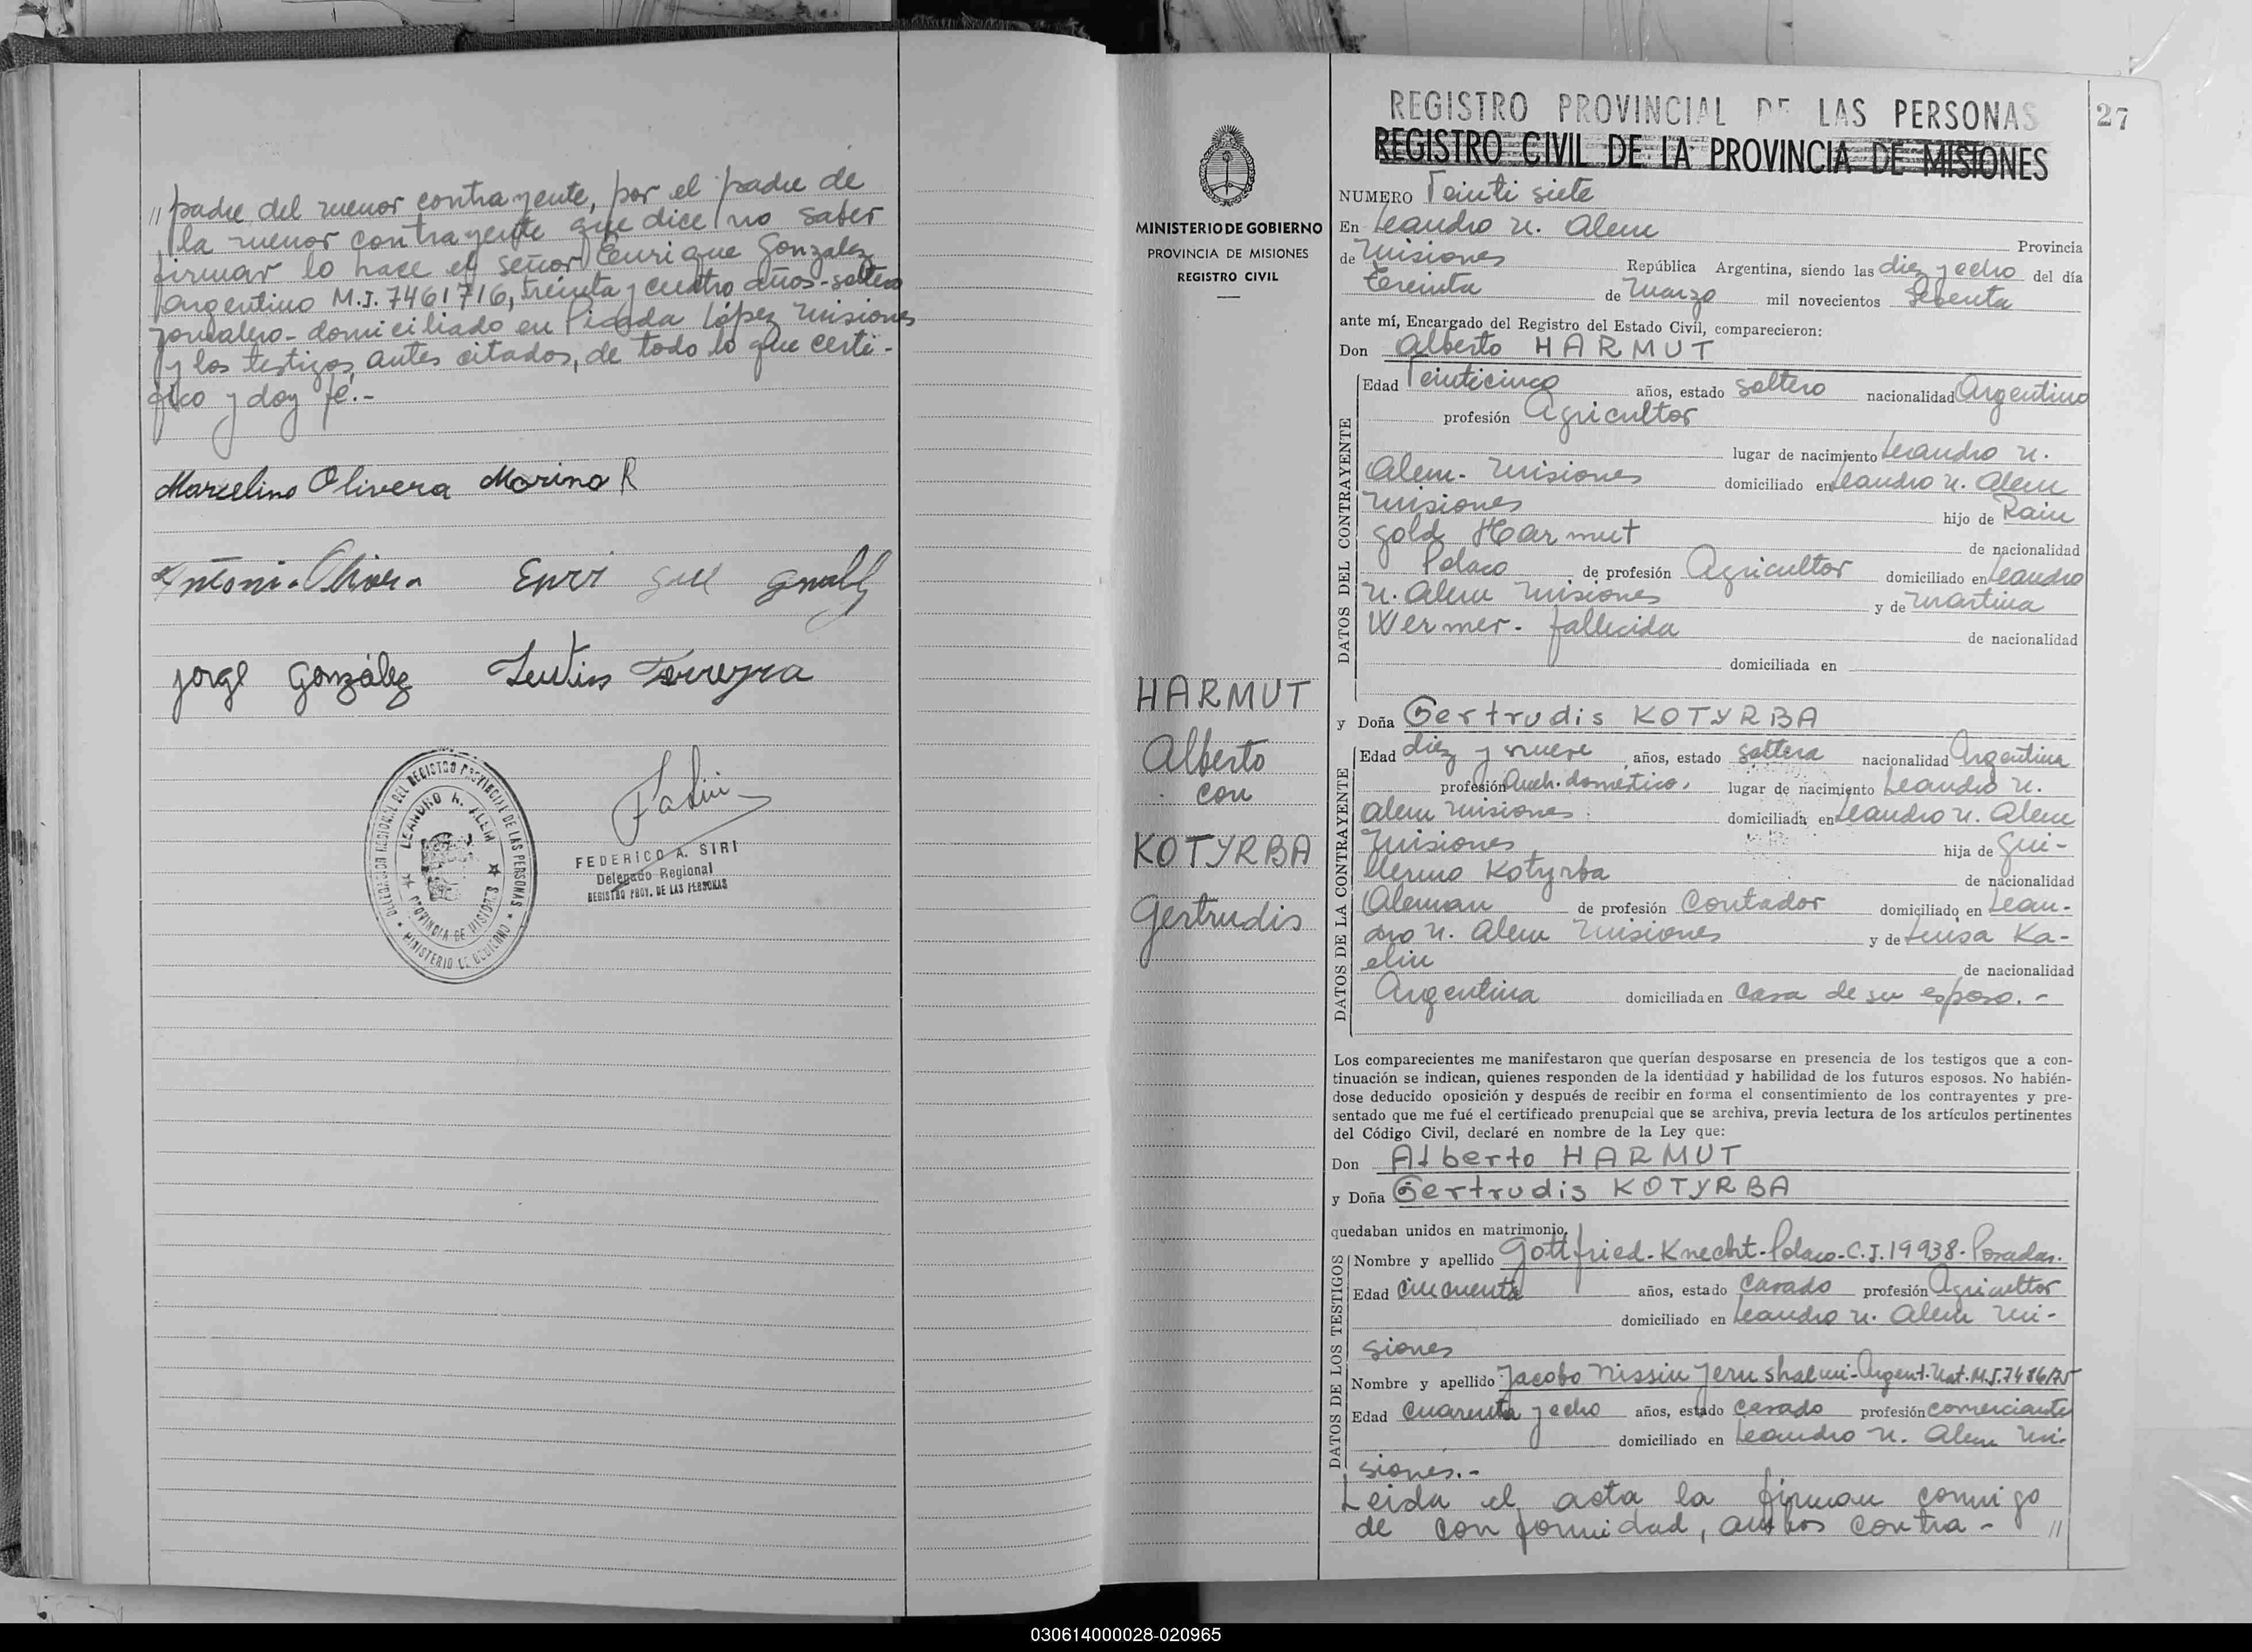 " padre del menor contrayente, por el padre de
la menor contrayente que dice no saber
firmar lo hace el señor Enrique Gonzalez
argentino M.I. 7461716, treinta y cuatro años-soltero
jornalero- domiciliado en Picada López Misiones
y los testigos antes citados, de todo lo que certi-
fico y doy fé.-
Marcelino Olivera Marino R
Antonio Olivera Enri que
Jorge González Ferreyra
DELEGACION REGIONAL DEL REGISTRO PROVINCIAL DE LAS PERSONAS
LEANDRO N. ALEM
PROVINCIA DE MISIONES
MINISTERIO DE GOBIERNO
FEDERICO A. SIRI
Delegado Regional
REGISTRO PROV. DE LAS PERSONAS
MINISTERIO DE GOBIERNO
PROVINCIA DE MISIONES
REGISTRO CIVIL
HARMUT
Alberto
con
KOTYRBA
Gertrudis
REGISTRO PROVINCIAL DE LAS PERSONAS
27
REGISTRO CIVIL DE LA PROVINCIA DE MISIONES
NUMERO Veinti siete
En Leandro N. Alem Provincia
de Misiones República Argentina, siendo las diez y ocho del día
Treinta de Marzo mil novecientos Setenta
ante mí, Encargado del Registro del Estado Civil, comparecieron:
Don Alberto HARMUT
DATOS DEL CONTRAYENTE
Edad Veinticinco años, estado soltero nacionalidad Argentino
profesión Agricultor
lugar de nacimiento Leandro N.
Alem- Misiones domiciliado en Leandro N. Alem
Misiones hijo de Rain
gold Harmut de nacionalidad
Polaco de profesión Agricultor domiciliado en Leandro
N. Alem Misiones y de Martina
Wermer- fallecida de nacionalidad
domiciliada en
y Doña Gertrudis KOTYRBA
DATOS DE LA CONTRAYENTE
Edad diez y nueve años, estado soltera nacionalidad Argentina
profesión Queh. doméstico, lugar de nacimiento Leandro N.
Alem Misiones domiciliada en Leandro N. Alem
Misiones hija de Gui-
llermo Kotyrba de nacionalidad
Aleman de profesión Contador domiciliado en Lean-
dro N. Alem Misiones y de Luisa Ka-
elin de nacionalidad
Argentina domiciliada en casa de su esposo.-
Los comparecientes me manifestaron que querían desposarse en presencia de los testigos que a con-
tinuación se indican, quienes responden de la identidad y habilidad de los futuros esposos. No habién-
dose deducido oposición y después de recibir en forma el consentimiento de los contrayentes y pre-
sentado que me fué el certificado prenupcial que se archiva, previa lectura de los artículos pertinentes
del Código Civil, declaré en nombre de la Ley que:
Don Alberto HARMUT
y Doña Gertrudis KOTYRBA
quedaban unidos en matrimonio.
DATOS DE LOS TESTIGOS
Nombre y apellido Gottfried-Knecht-Polaco-C.I.19938-Posadas.
Edad cincuenta años, estado casado profesión Agricultor
domiciliado en Leandro N. Alem Mi-
siones
Nombre y apellido Jacobo Nissin Jerushalmi-Argent. Nat. M.I.
Edad cuarenta y ocho años, estado casado profesión comerciante
domiciliado en Leandro N. Alem Mi-
siones.-
Leida el acta la firman conmigo
de conformidad, ambos contra- "
030614000028-020965